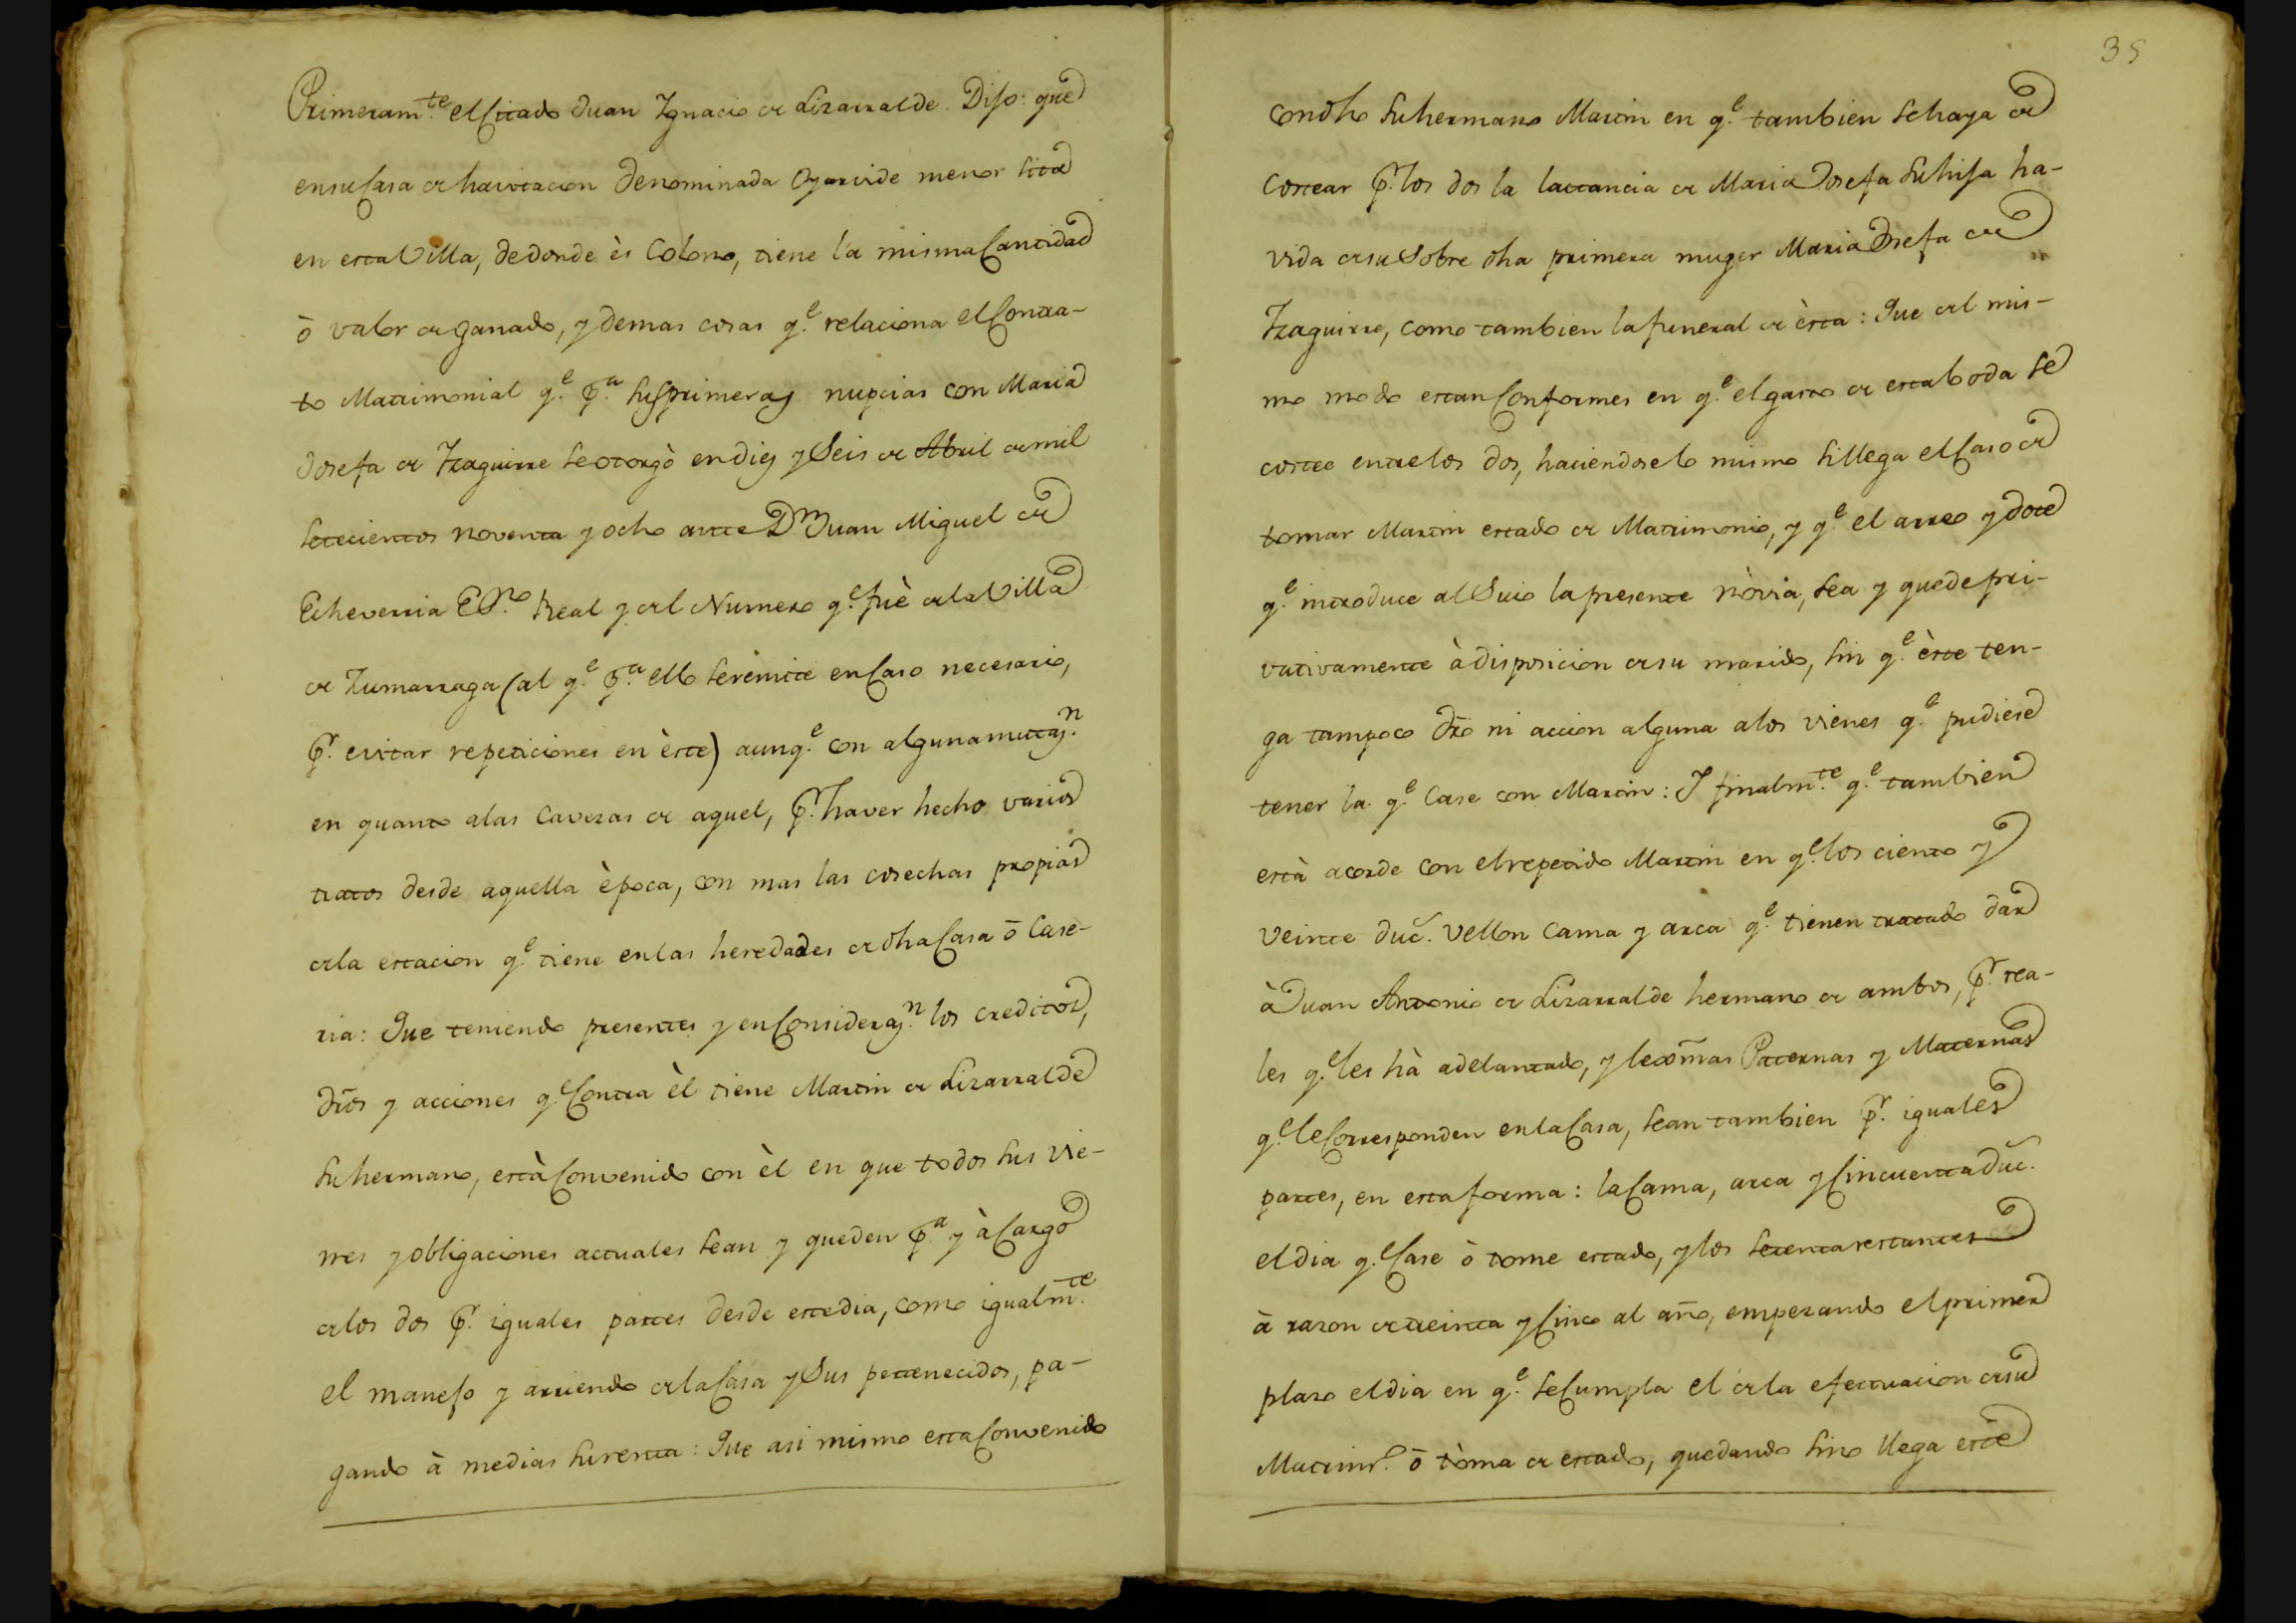 Primeram.te el citado Juan Ygnacio de Lizarralde. Dijo: que
en su Casa de havitacion denominada Oyarvide menor sita
en esta Villa, de donde ès Colono, tiene la misma Cantidad
ò valor de ganado, y demas cosas q.e relaciona el Contra-
to Matrimonial q.e p.a sus primeras nupcias con Maria
Josefa de Yzaguirre se otorgò en diez y Seis de Abril de mil
setecientos noventa y ocho ante D.n Juan Miguel de
Echeverria Es.no Real y del Numero q.e fuè de la Villa
de Zumarraga (al q.e p.a ello se remite en Caso necesario,
p.r evitar repeticiones en èste) aunq.e con alguna mutaz.n
en quanto a las Cavezas de aquel, p.r haver hecho varios
tratos desde aquella època, con mas las cosechas propias
de la estacion q.e tiene en las heredades de dha Casa ò Case-
ria: Que teniendo presentes y en Consideraz.n los creditos,
dros y acciones q.e Contra èl tiene Martin de Lizarralde
su hermano, està Convenido con èl en que todos sus vie-
nes y obligaciones actuales sean y queden p.a y à Cargo
de los dos p.r iguales partes desde este dia, como igualm.te
el manejo y arriendo de la Casa y Sus pertenecidos, pa-
gando à medias su renta: Que asi mismo esta Convenido
35
con dho su hermano Martin en q.e tambien se haya de
Costear p.r los dos la lactancia de Maria Josefa su hija ha-
vida de su Sobre dha primera muger Maria Josefa de
Yzaguirre, como tambien la funeral de èsta: Que del mis-
mo modo estan Conformes en q.e el gasto de esta boda se
costee entre los dos, haciendose lo mismo si llega el Caso de
tomar Martin estado de Matrimonio, y q.e el arreo y dote
q.e introduce al Suio la presente nòvia, sea y quede pri-
vativamente à disposicion de su marido, sin q.e èste ten-
ga tampoco dro ni accion alguna a los vienes q.e pudiese
tener la q.e Case con Martin: Y finalm.te q.e tambien
està acorde con el repetido Martin en q.e los ciento y
veinte duc. vellon cama y arca q.e tienen tratado dar
à Juan Antonio de Lizarralde hermano de ambos, p.r rea-
les q.e les hà adelantado, y lexmas Paternas y Maternas
q.e le Corresponden en la Casa, sean tambien p.r iguales
partes, en esta forma: la Cama, arca y Cincuenta duc.
el dia q.e Case ò tome estado, y los setenta restantes
à razon de treinta y Cinco al año, empezando el primer
plazo el dia en q.e se Cumpla el de la efectuacion de su
Matrim.o ò tòma de estado, quedando sino llega este